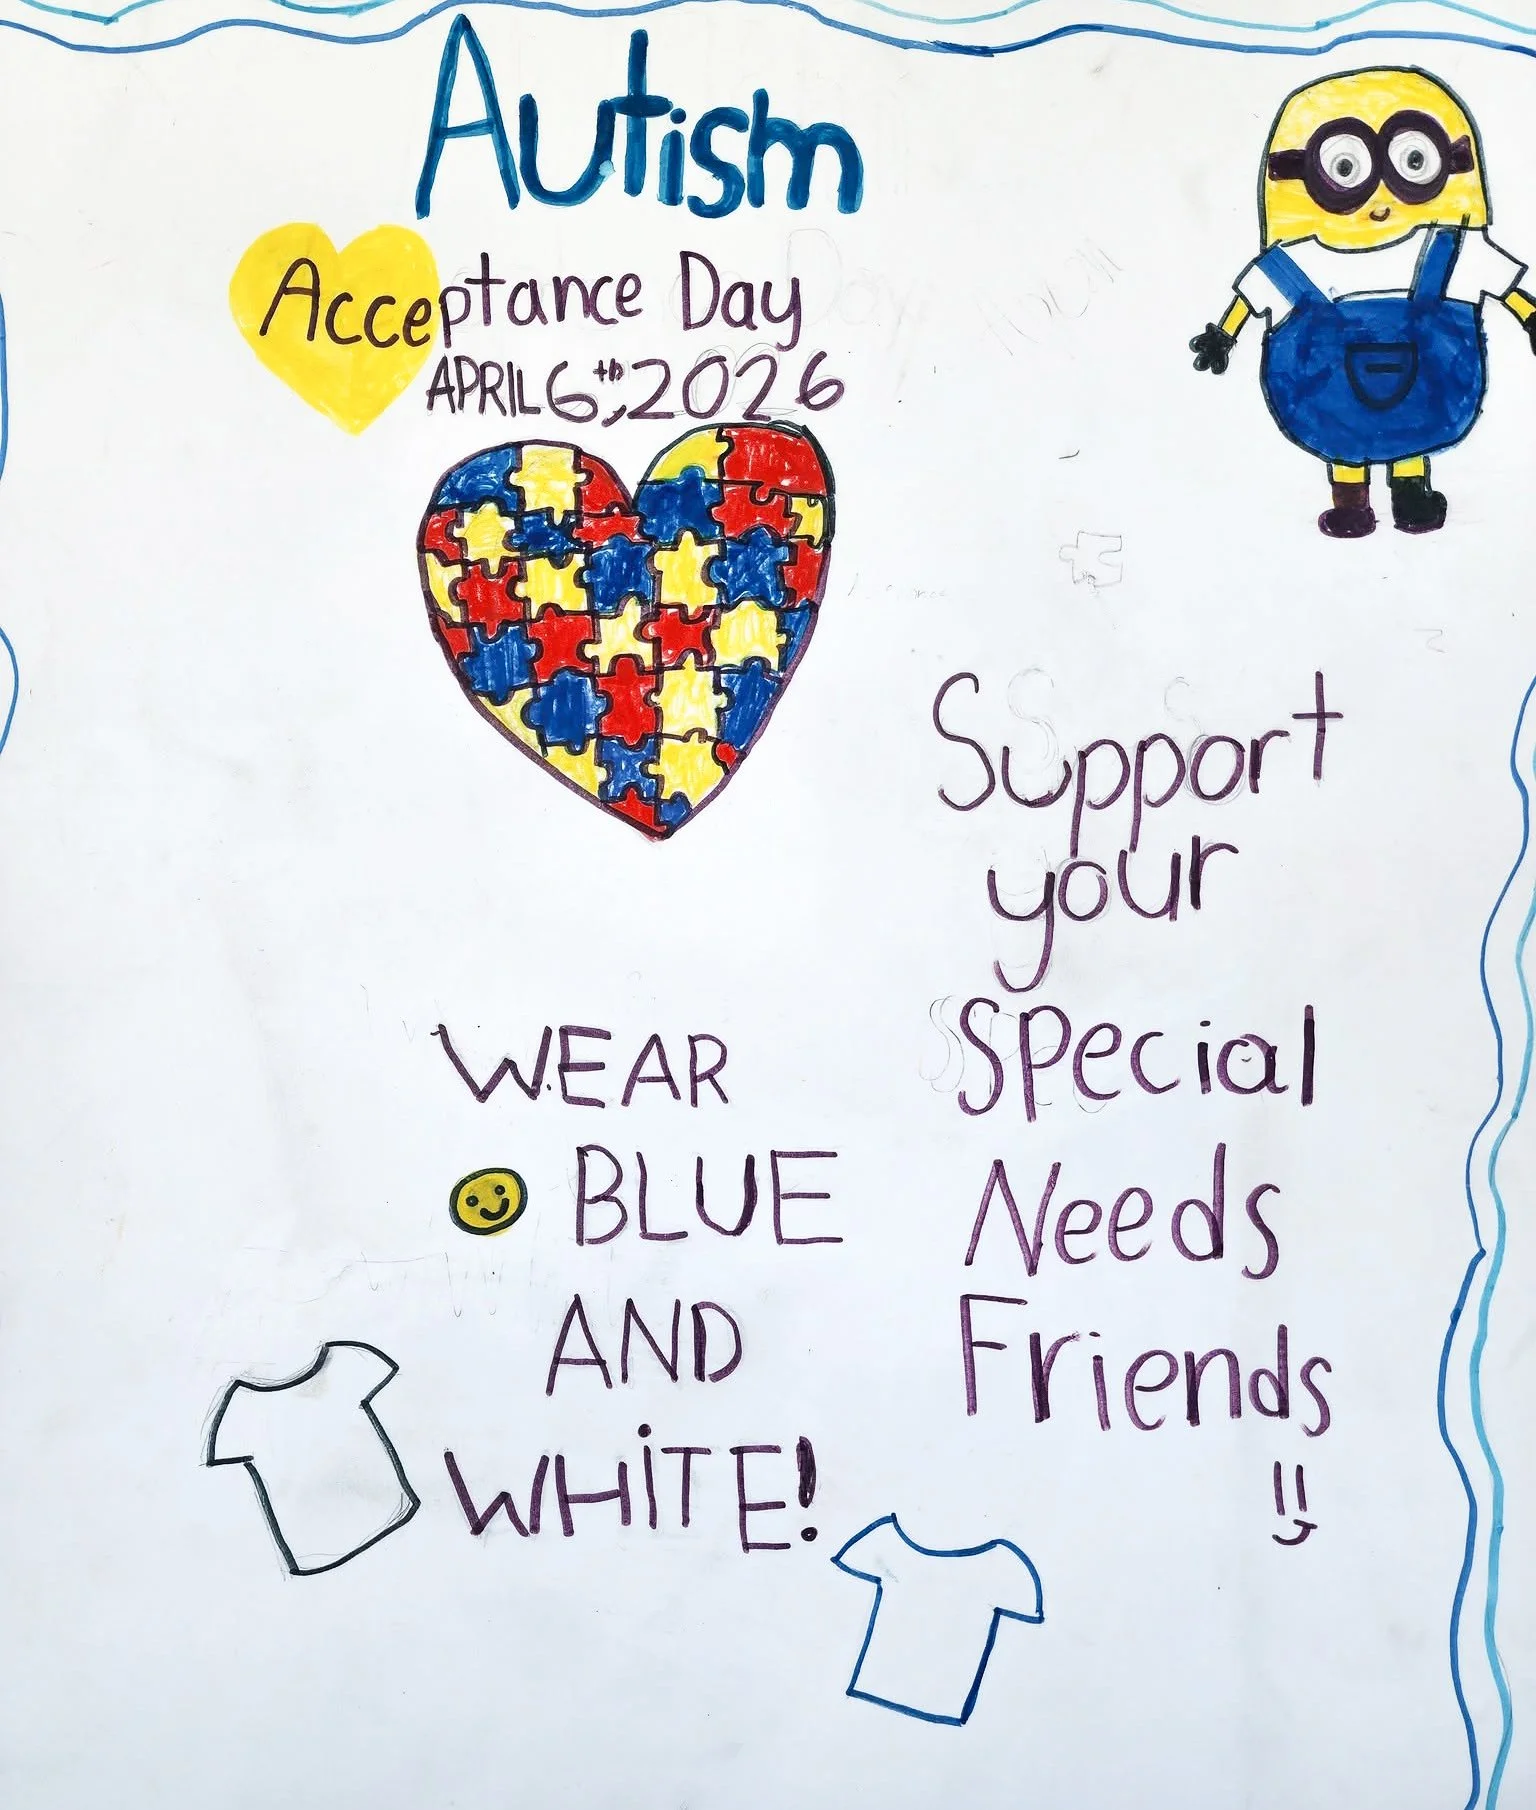 Autism
Acceptance Day
APRIL 6th, 2026
Support
your
Special
Needs
Friends
WEAR
BLUE
AND
WHiTE!